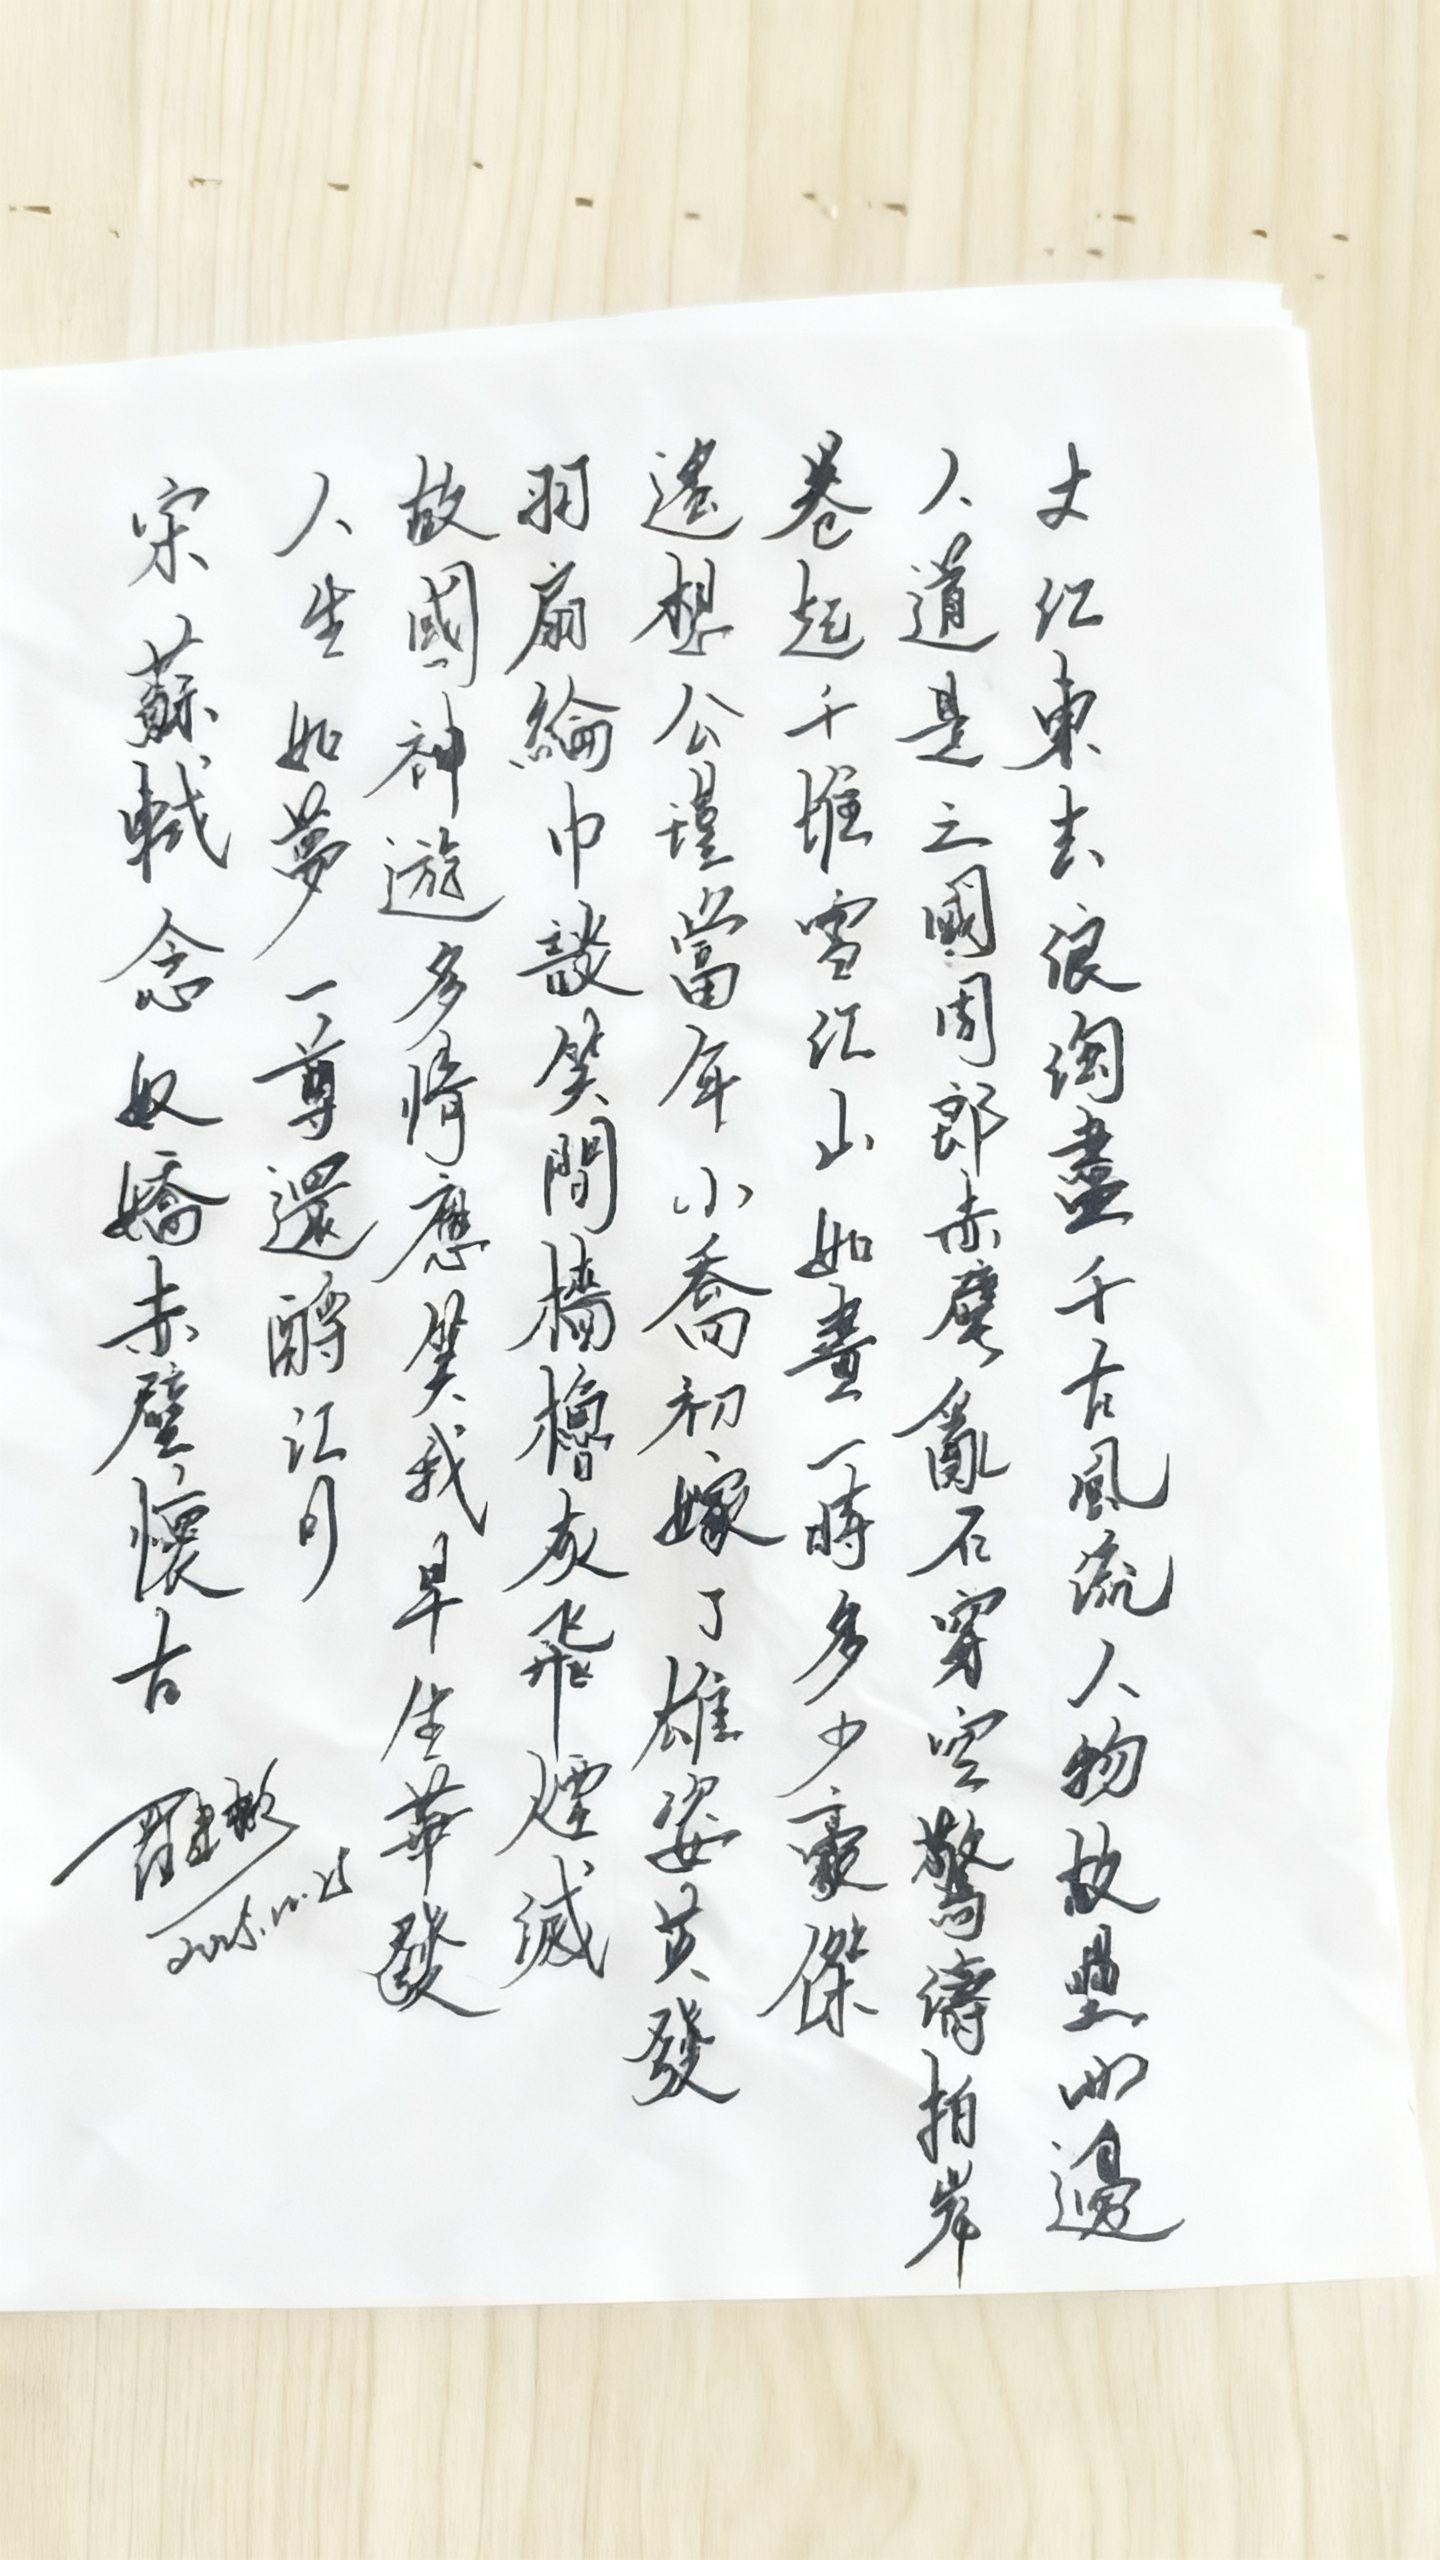 大江東去浪淘盡千古風流人物故壘西邊
人道是三國周郎赤壁亂石穿空驚濤拍岸
卷起千堆雪江山如畫一時多少豪傑
遙想公瑾當年小喬初嫁了雄姿英發
羽扇綸巾談笑間檣櫓灰飛煙滅
故國神遊多情應笑我早生華發
人生如夢一尊還酹江月
宋蘇軾念奴嬌赤壁懷古
2025.10.25